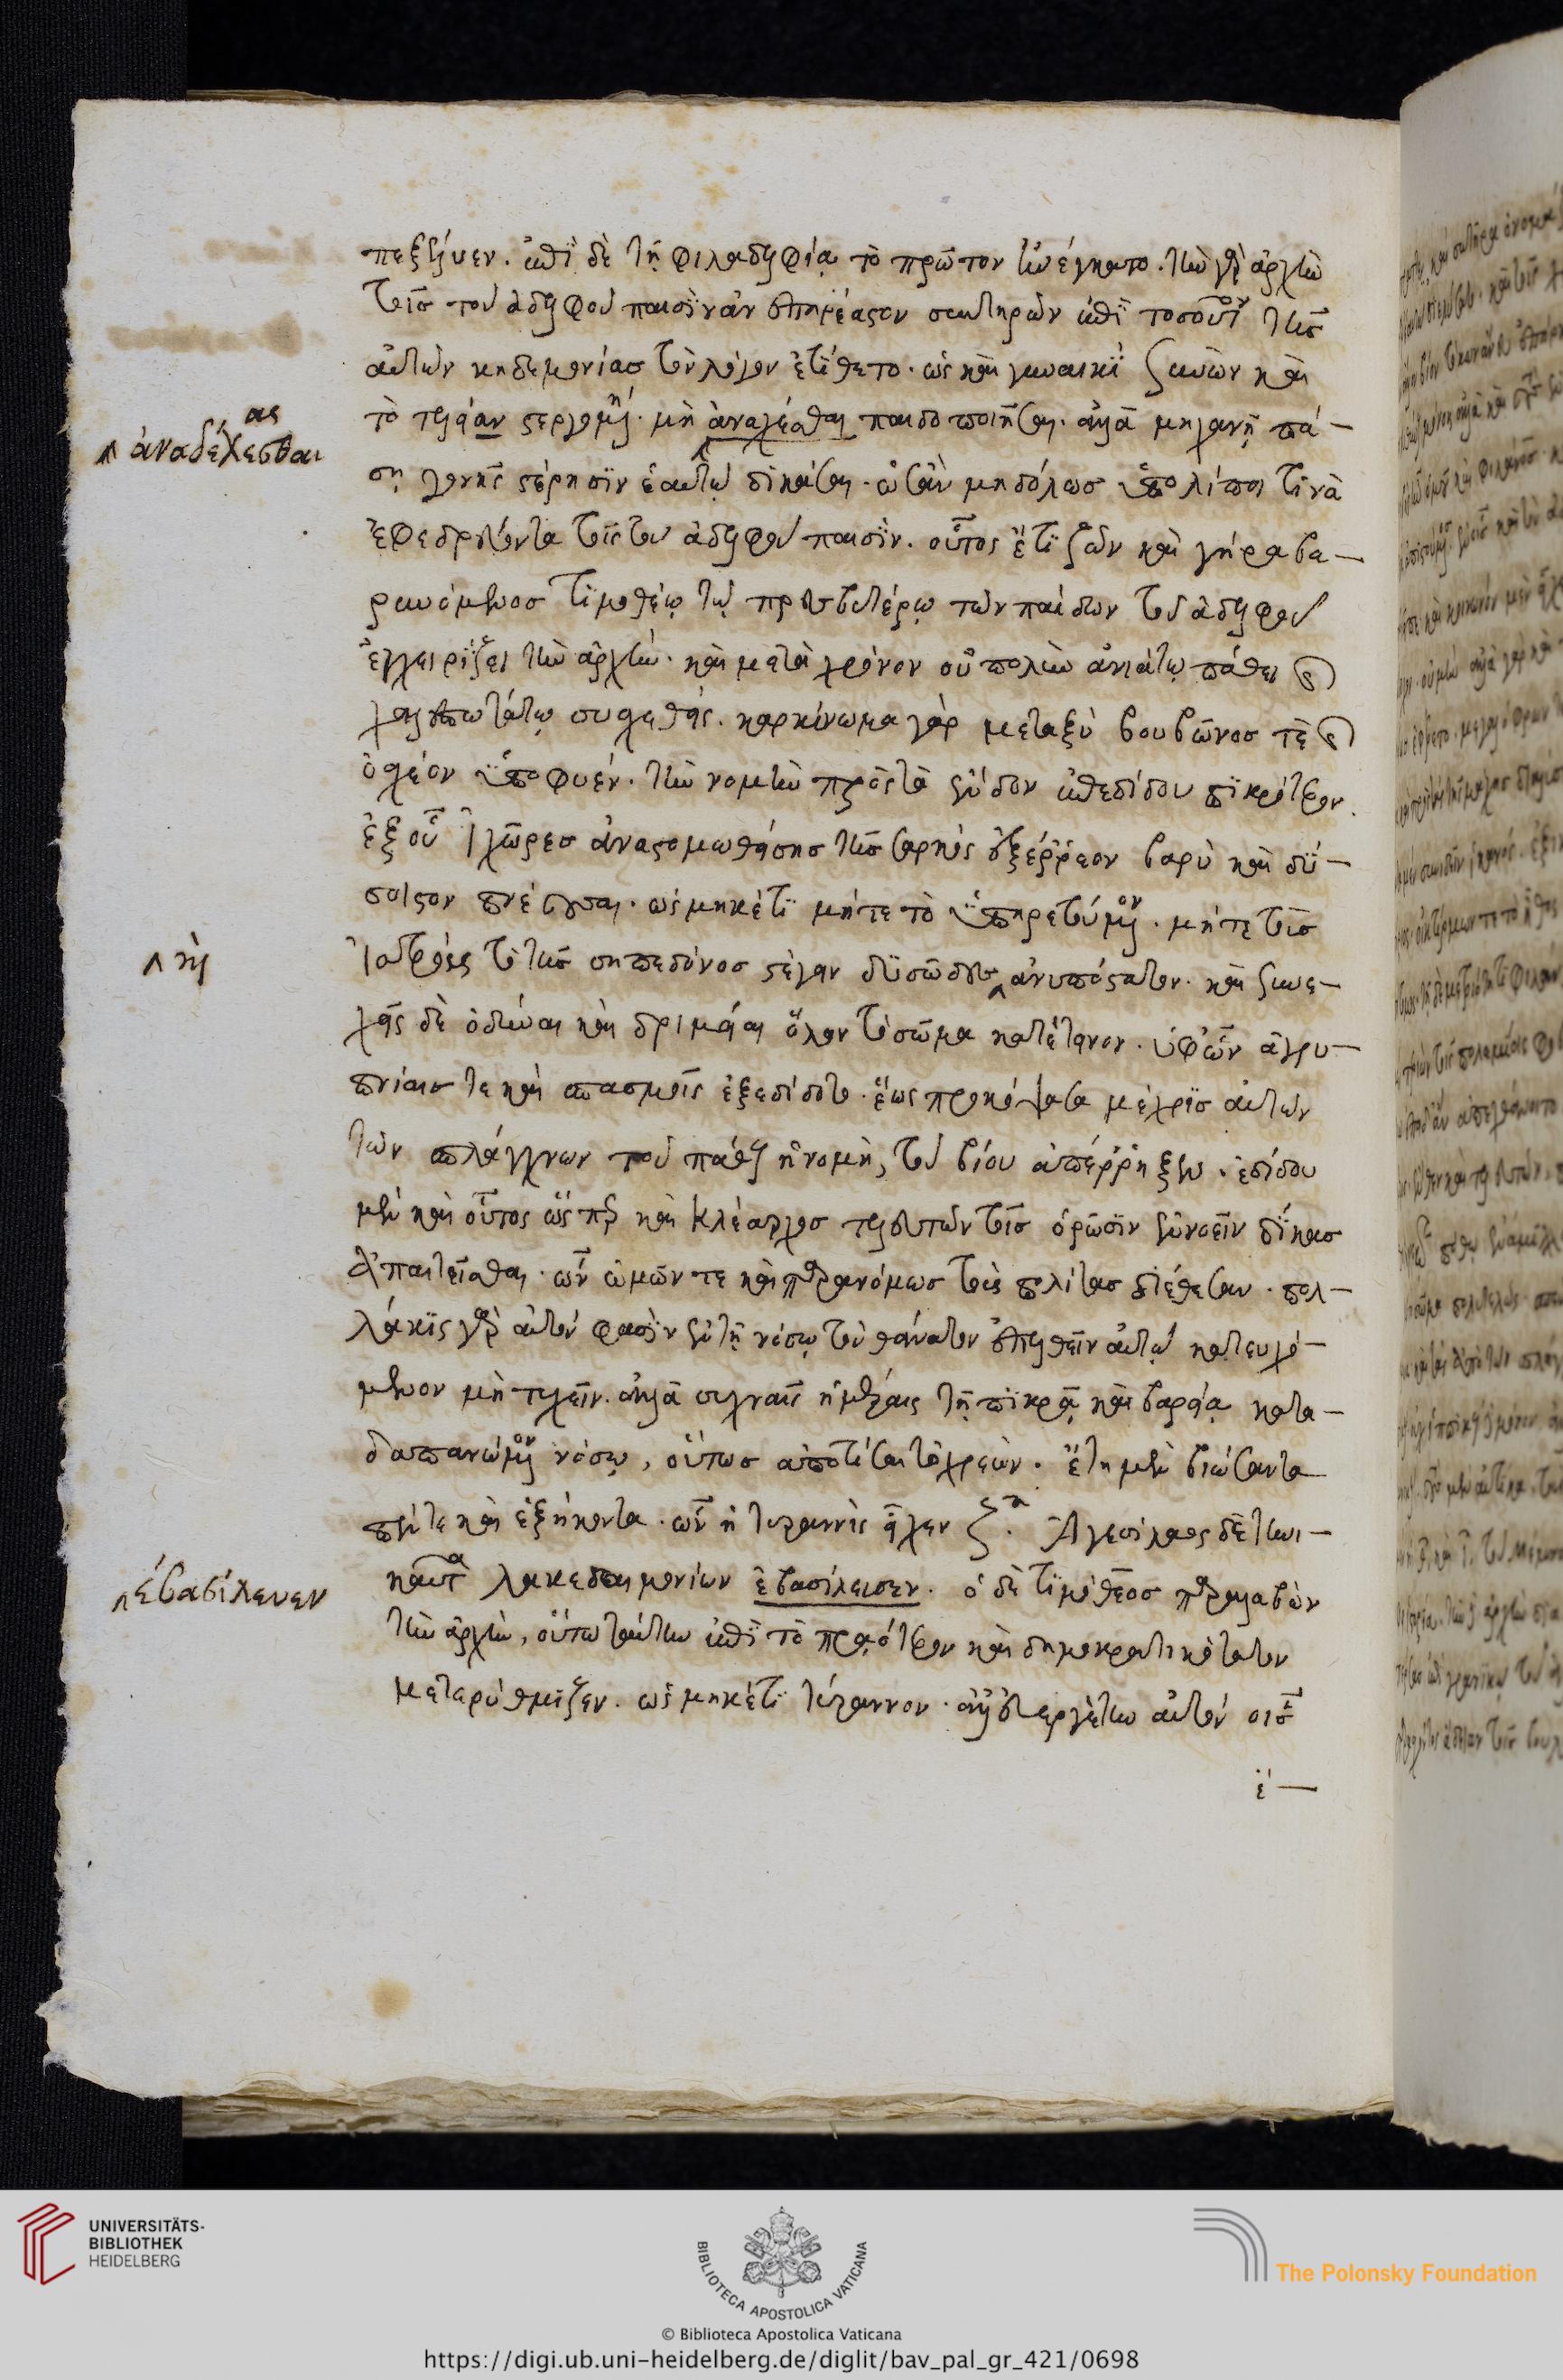 πεξῆγεν. ἐπὶ δὲ τῇ φιλαδελφίᾳ τὸ πρῶτον ἠνέγκατο. τὴν γὰρ ἀρχὴν
τοῖσ τοῦ ἀδελφοῦ παισὶν ἀνεπηρέαστον συντηρῶν ἐπὶ τοσοῦτον τῆσ
αὐτῶν κηδεμονίασ τὸν λόγον ἐτίθετο. ὡς καὶ γυναικὶ συνὼν καὶ
τὸ τελέαν στεργομένη. μὴ ἀνασχέσθαι παιδοποιῆσαι. ἀλλὰ μηχανῇ πά-
σῃ γονῆς στέρησιν ἑαυτῷ δικάσαι. ὡσὰν μηδόλωσ ὑπολίποι τινὰ
ἐφεδρεύοντα τοῖς τοῦ ἀδελφοῦ παισίν. οὗτος ἔτι ζῶν καὶ γήρα βα-
ρυνόμενοσ τιμοθέῳ τῷ πρεσβυτέρῳ τῶν παίδων τοῦ ἀδελφοῦ
ἐγχειρίζει τὴν ἀρχήν. καὶ μετὰ χρόνον οὐ πολὺν ἀνιάτῳ πάθει καὶ
χαλεπωτάτῳ συσχεθείς. καρκίνωμα γὰρ μεταξὺ βουβῶνοσ τὲ καὶ
ὀσχέον ὑποφυέν. τὴν νομὴν πρὸς τὰ ἔνδον ἐπεδίδου πικρότερον.
ἐξ οὗ ἰχῶρεσ ἀναστομωθείσησ τῆσ σαρκὸς ἐξέρρεον βαρὺ καὶ δύ-
σοιστον πνέουσαι. ὡς μηκέτι μήτε τὸ ὑπηρετούμενον. μήτε τοῖσ
ἰατροὺς τὸ τῆσ σηπεδόνοσ στέγειν δυσῶδες ἀνυπόστατον. καὶ συνε-
χεῖς δὲ ὀδύναι καὶ δριμεῖαι ὅλον τὸ σῶμα κατέτεινον. ὑφ᾽ ὧν ἀγρυ-
πνίαισ τε καὶ σπασμοῖς ἐξεδίδοτο. ἕως προκόψασα μέχρισ αὐτῶν
τῶν σπλάγχνων τοῦ πάθους ἡ νομὴ, τοῦ βίου ἀπέρρηξεν. ἐδίδου
μὲν καὶ οὗτος ὥσπερ καὶ κλέαρχοσ τελευτῶν τοῖσ ὁρῶσιν ἐννοεῖν δίκασ
ἀπαιτεῖσθαι. ὧν ὠμῶν τε καὶ παρανόμωσ τοὺς πολίτασ διέθεσαν. πολ-
λάκις γὰρ αὐτόν φασὶν ἐν τῇ νόσῳ τὸν θάνατον ἐπελθεῖν αὐτῷ κατευχό-
μενον μὴ τυχεῖν. ἀλλὰ συχναῖς ἡμέραις τῇ πικρᾷ καὶ βαρείᾳ κατα-
δαπανώμενον νόσῳ, οὕτωσ ἀποτῖσαι τὸ χρεών. ἔτη μὲν βιώσαντα
πέντε καὶ ἑξήκοντα. ὧν ἡ τυραννὶς εἶχεν ζ. Ἀγησίλαος δὲ τηνι-
καῦτα λακεδαιμονίων ἐβασίλευσεν. ὁ δὲ τιμόθεοσ παραλαβὼν
τὴν ἀρχὴν, οὕτω ταύτην ἐπὶ τὸ πρᾳότερον καὶ δημοκρατικώτατον
μετερύθμιζεν. ὡς μηκέτι τύραννον. ἀλλ᾽ εὐεργέτην αὐτόν οἷσ
ἔ-
ας
ἀναδέχεσθαι
καὶ
ἐβασίλευεν
UNIVERSITÄTS-
BIBLIOTHEK
HEIDELBERG
BIBLIOTECA APOSTOLICA VATICANA
The Polonsky Foundation
© Biblioteca Apostolica Vaticana
https://digi.ub.uni-heidelberg.de/diglit/bav_pal_gr_421/0698